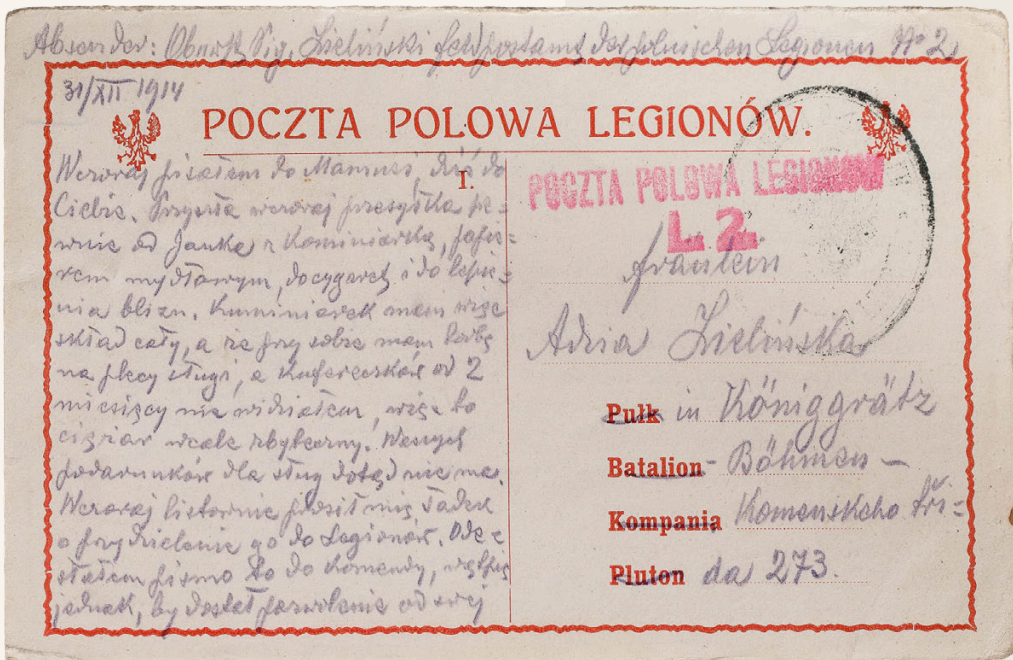 Absender: Oberlt Sig. Zieliński Feldpostamt der polnischen Legionen No 2.
31/XII 1914
POCZTA POLOWA LEGIONÓW.
I.
Wczoraj pisałem do Mamusi, dziś do
Ciebie. Przyszła wczoraj przesyłka pe=
wnie od Janka z kominiarką, papie=
rem mydłowym, do cygaret i do lepie=
nia blizn. Kominiarek mam więc
skład cały, a że przy sobie mam torbę
na plecy sługi, a kufereczków od 2
miesięcy nie widziałem, więc to
ciężar wcale zbyteczny. Waszych
podarunków dla sług dotąd nie ma.
Wczoraj listownie prosił mię Tadek
o przydzielenie go do Legionów. Ode=
słałem pismo to do Komendy, wątpię
jednak, by dostał pozwolenie od swej
POCZTA POLOWA LEGIONÓW
L. 2.
Fräulein
Adzia Zielińska
Pułk in Königgrätz
Batalion - Böhmen -
Kompania Komenskeho tři=
Pluton da 273.